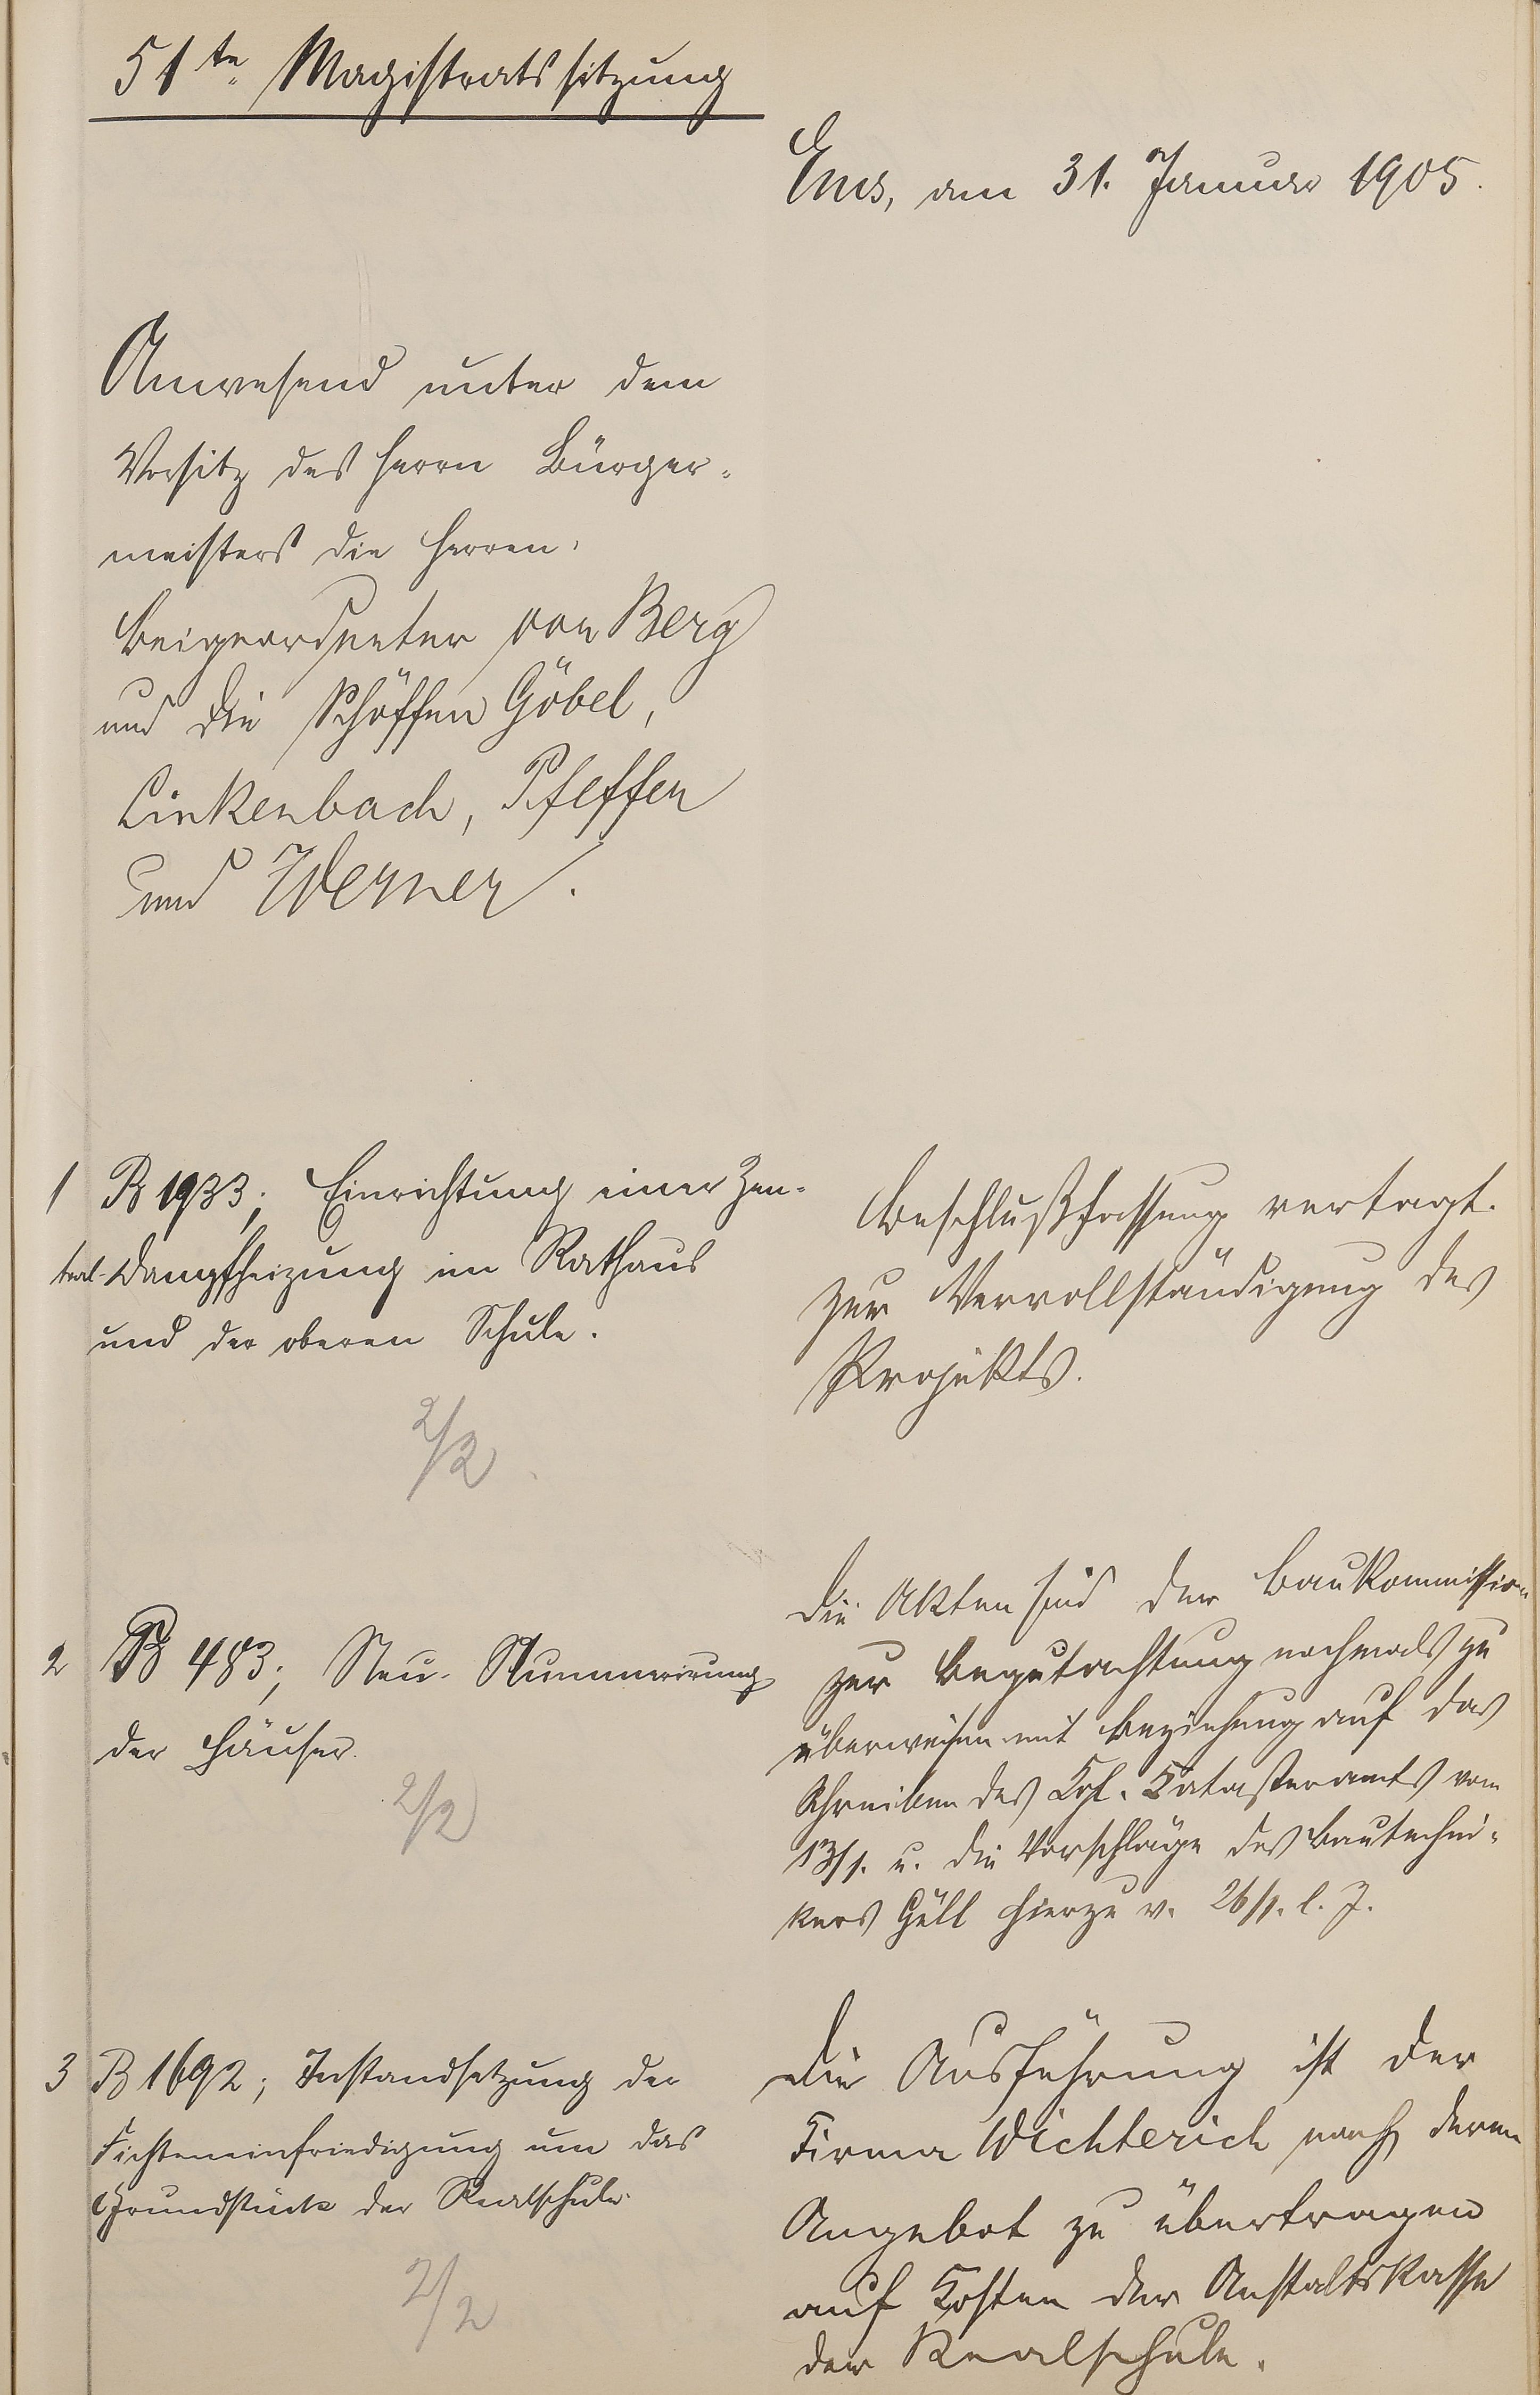 51te Magistratssitzung
Ems, am 31. Januar 1905.
Anwesend unter dem
Vorsitz des Herrn Bürger-
meisters die Herren:
Beigeordneter von Berg
und die Schöffen Göbel,
Linkenbach, Pfeffer
und Werner.
1 B 1933; Einrichtung einer Zen-
tral-Dampfheizung im Rathaus
und der oberen Schule.
2/2
Beschlußfassung vertagt.
zur Vervollständigung des
Projekts.
2 B 483; Neu-Nummerirung
der Häuser.
2/2
Die Akten sind der Baukommission
zur Begutachtung nochmals zu
überweisen mit Beziehung auf das
Schreiben des Kgl. Katasteramts vom
13/1. u. die Vorschläge des Bautechni-
kers Güll hierzu v. 26/1. l. J.
3 B 1692; Instandsetzung der
Fichteneinfriedigung um das
Grundstück der Realschule.
2/2
Die Ausführung ist der
Firma Wichterich nach deren
Angebot zu übertragen
auf Kosten der Anstaltskasse
der Realschule.